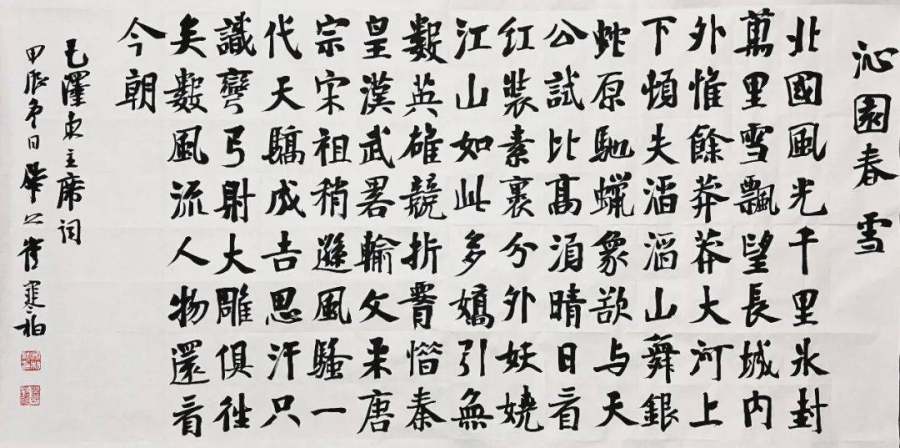 沁園春雪
北國風光千里冰封
萬里雪飄望長城內
外惟餘莽莽大河上
下頓失滔滔山舞銀
蛇原馳蠟象欲与天
公試比高須晴日看
紅裝素裹分外妖嬈
江山如此多嬌引無
數英雄競折腰惜秦
皇漢武畧輸文采唐
宗宋祖稍遜風騷一
代天驕成吉思汗只
識彎弓射大雕俱往
矣數風流人物還看
今朝
毛澤東主席詞
甲辰日崔寒柏